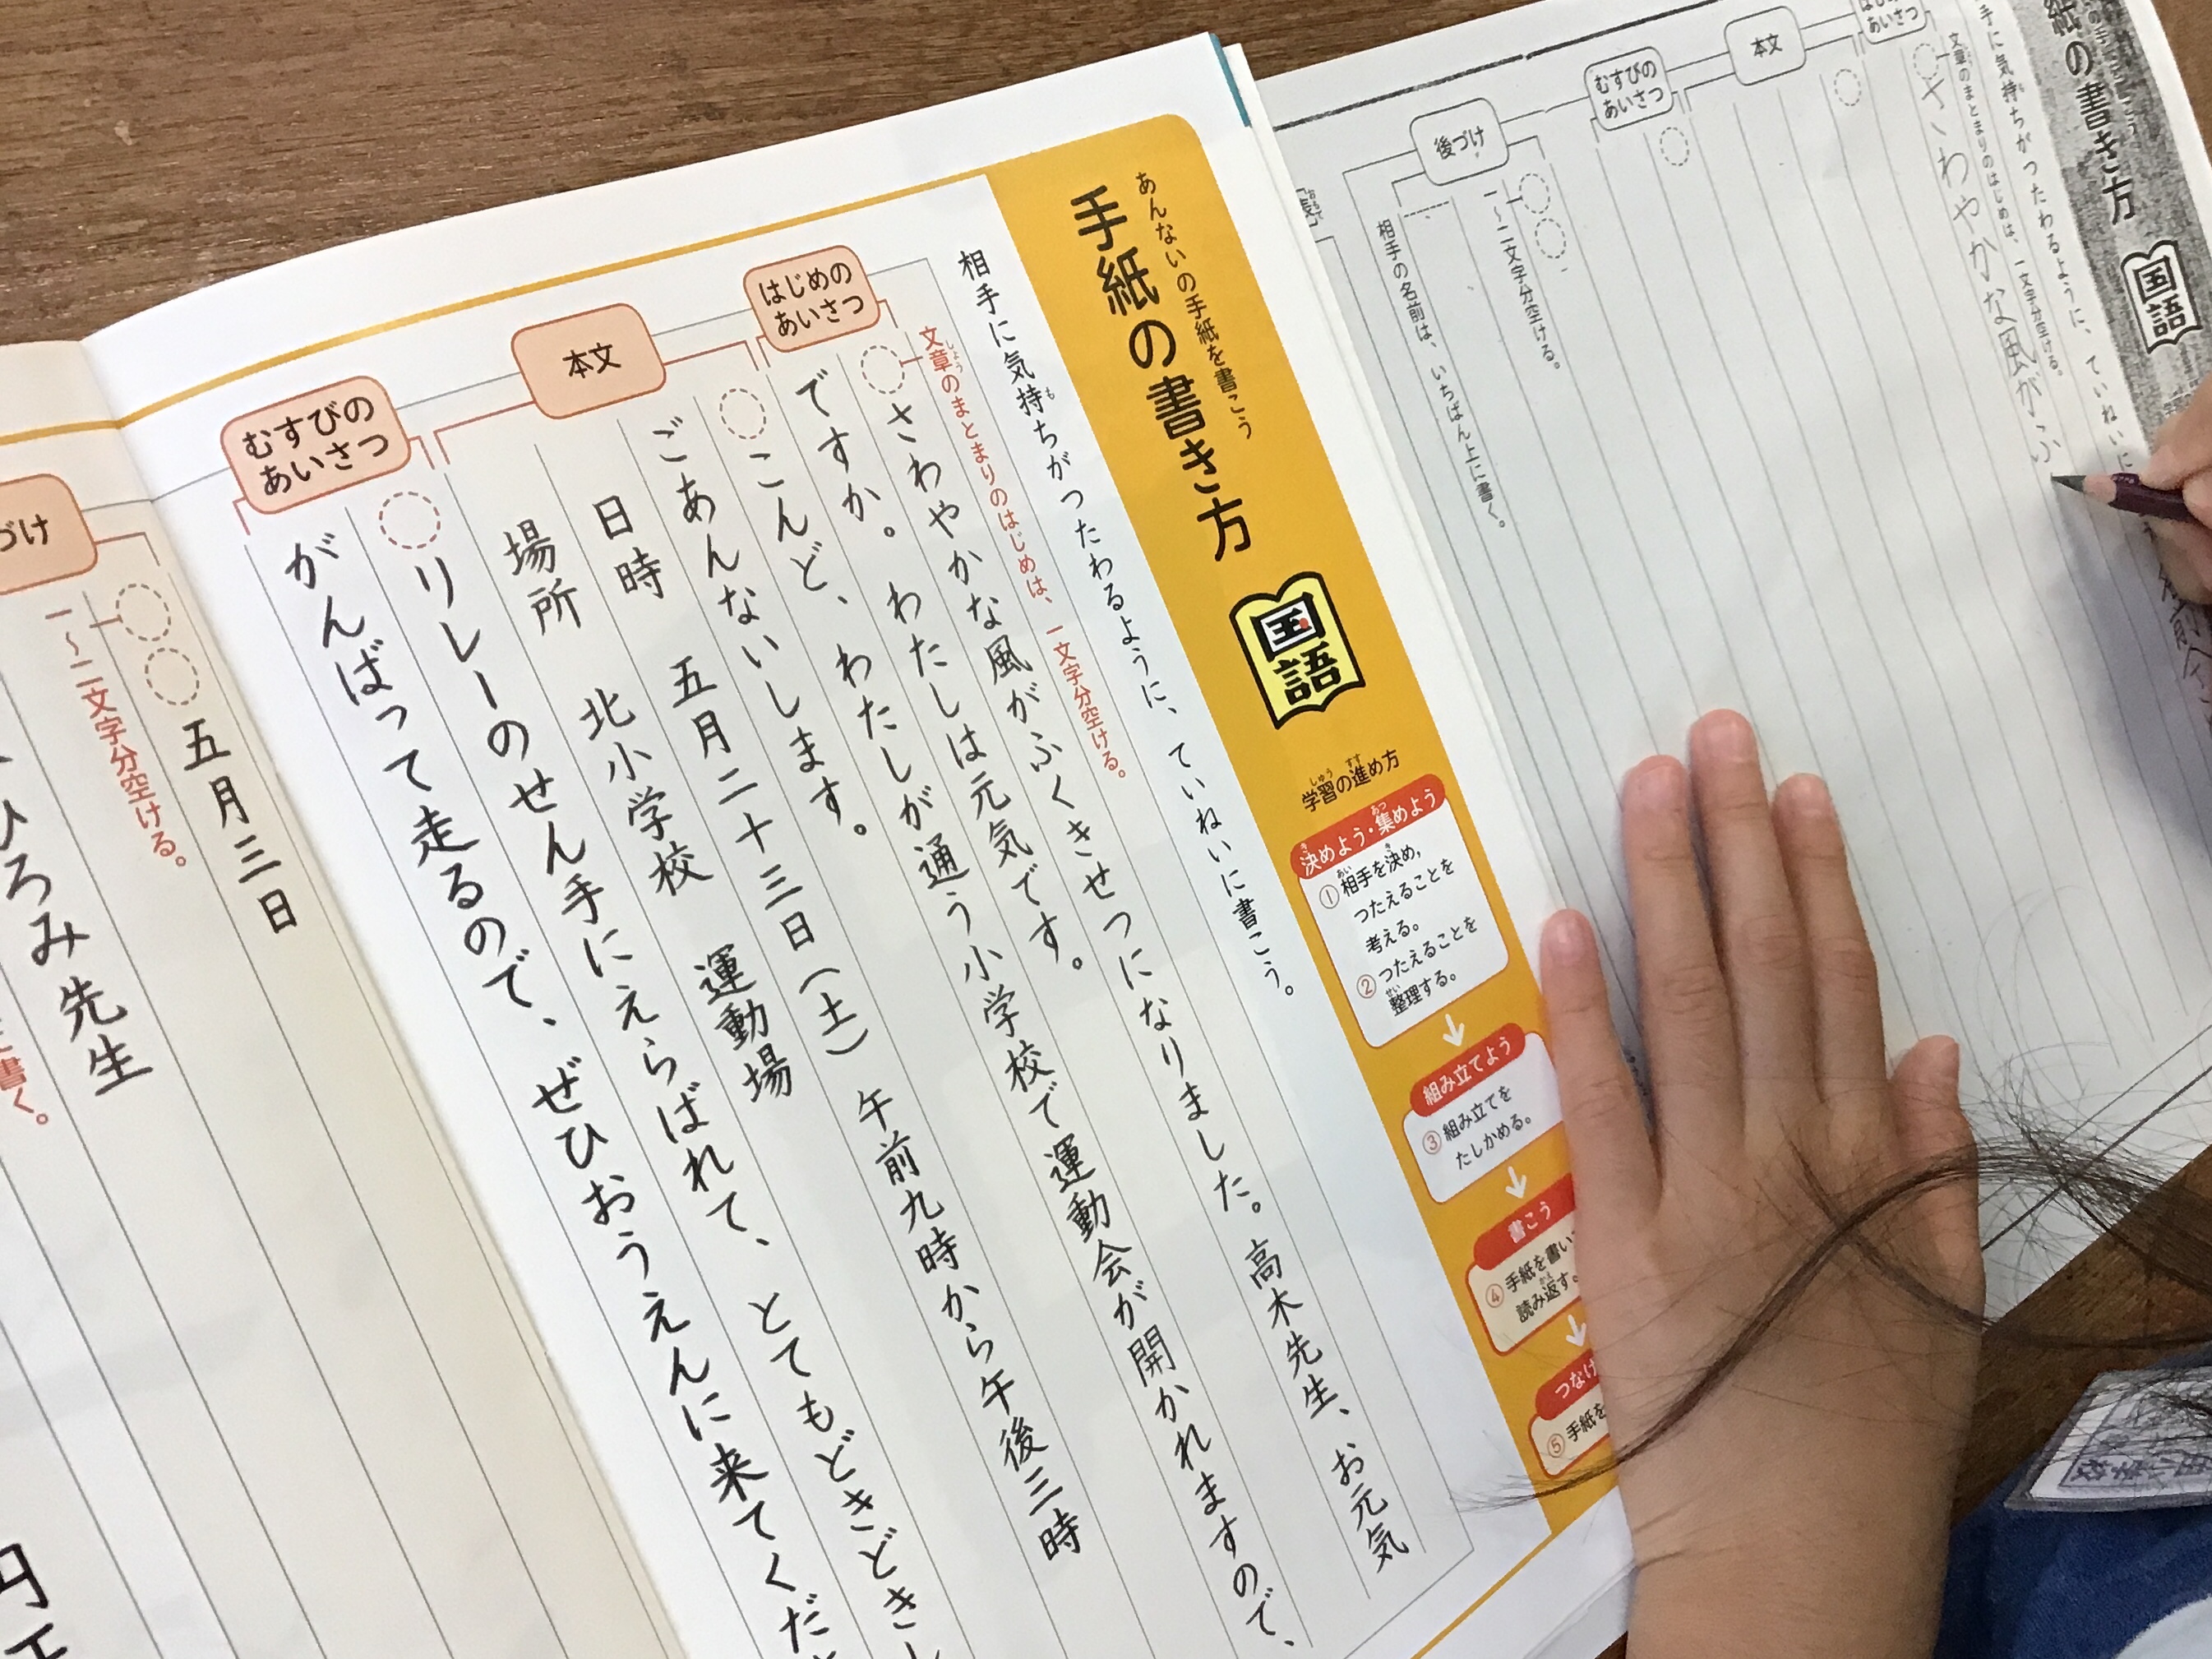 あんないの手紙を書こう
手紙の書き方
国語
学習の進め方
しゅう
すす
決めよう・集めよう
き
あつ
①相手を決め，
あい
つたえることを
考える。
②つたえることを
整理する。
せい
組み立てよう
③組み立てを
たしかめる。
書こう
④手紙を書い
読み返す。
かえ
つなげ
⑤手紙を
相手に気持ちがつたわるように、ていねいに書こう。
も
文章のまとまりのはじめは、一文字分空ける。
しょう
はじめの
あいさつ
さわやかな風がふくきせつになりました。高木先生、お元気
ですか。わたしは元気です。
本文
こんど、わたしが通う小学校で運動会が開かれますので、
ごあんないします。
日時　五月二十三日（土）　午前九時から午後三時
場所　北小学校　運動場
むすびの
あいさつ
リレーのせん手にえらばれて、とてもどきどきし
がんばって走るので、ぜひおうえんに来てくだ
づけ
五月三日
一～二文字分空ける。
ひろみ先生
書く。
紙の書き方
国語
手に気持ちがつたわるように、ていねいに
文章のまとまりのはじめは、一文字分空ける。
あいさつ
さわやかな風がふ
本文
むすびの
あいさつ
後づけ
一～二文字分空ける。
相手の名前は、いちばん上に書く。